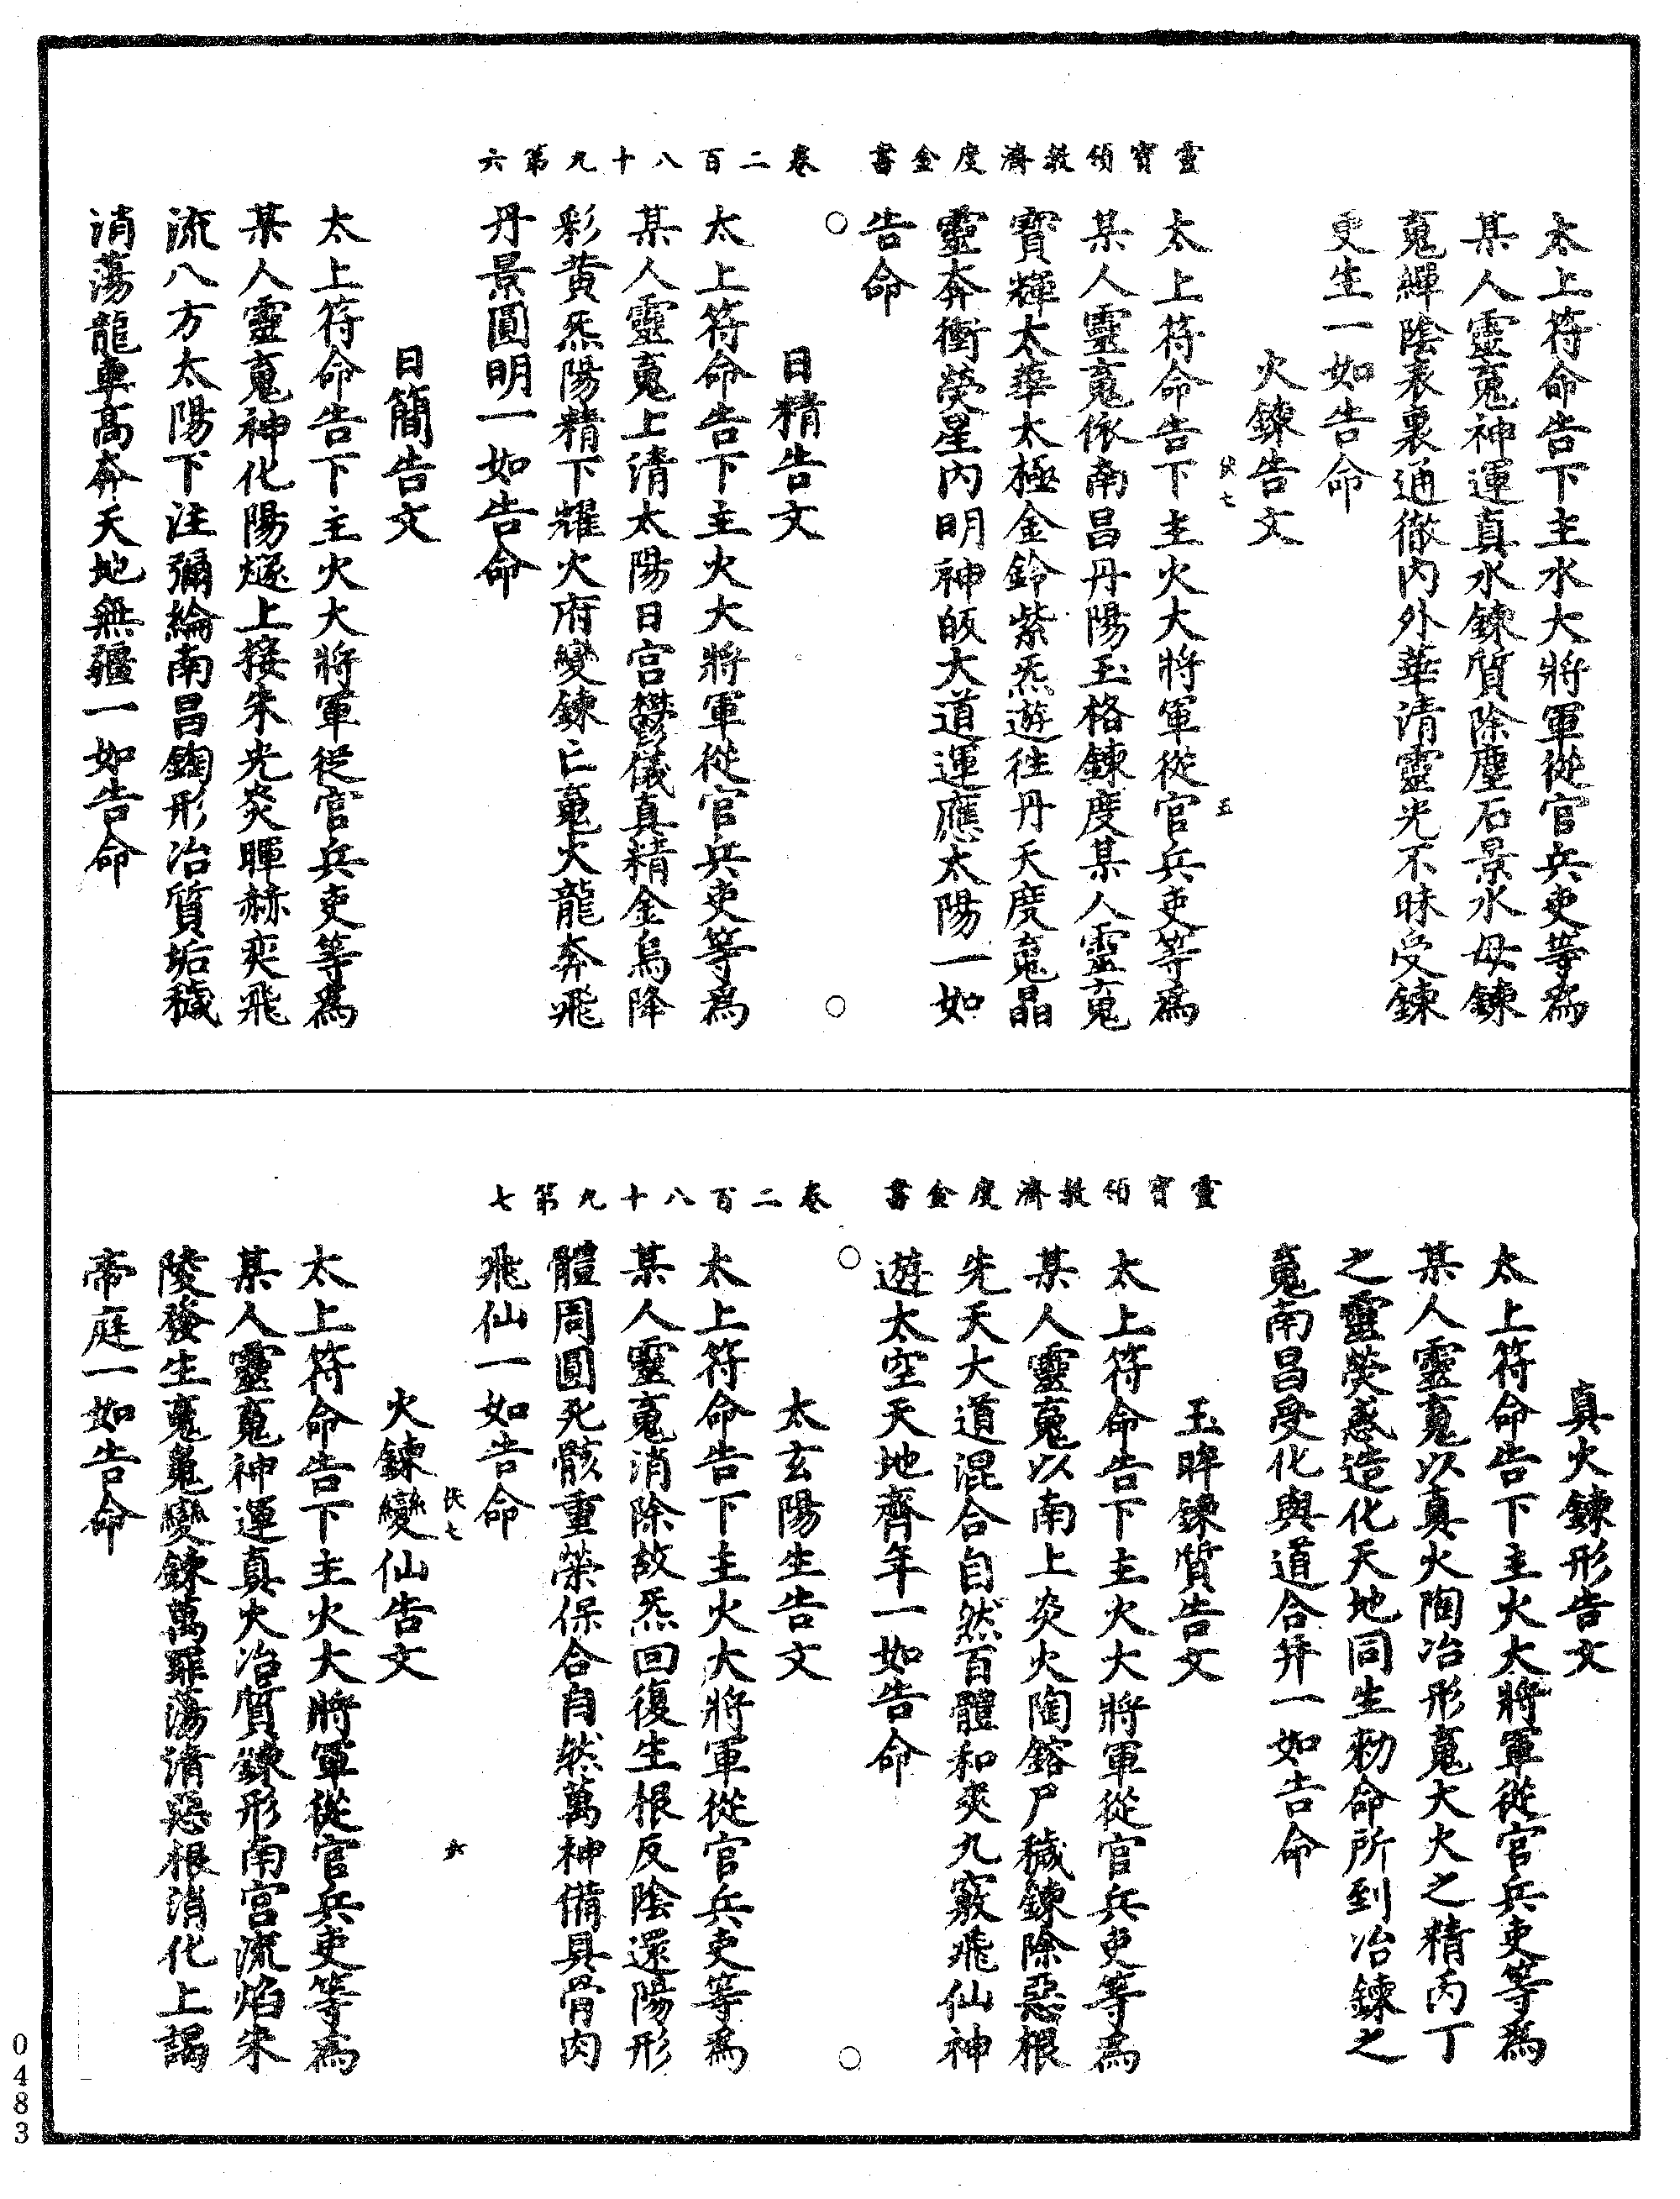 靈寶領教濟度金書 卷二百八十九第六
太上符命告下主水大將軍從官兵吏等爲
某人靈䰟神運真水鍊質除塵石景水母鍊
䰟繟陰表裏通徹內外華清靈光不昧受鍊
更生一如告命
火鍊告文
太上符命告下主火大將軍從官兵吏等爲
某人靈䰟依南昌丹陽玉格鍊度某人靈䰟
寶輝太華太極金鈴紫炁遊徃丹天度䰟晶
靈奔衝熒星內明神皈大道運應太陽一如
告命
日精告文
太上符命告下主火大將軍從官兵吏等爲
某人靈䰟上清太陽日宮鬱儀真精金烏降
彩黃炁陽精下耀火府變鍊亡䰟火龍奔飛
丹景圓明一如告命
日簡告文
太上符命告下主火大將軍從官兵吏等爲
某人靈䰟神化陽燧上接朱光炎暉赫奕飛
流八方太陽下注彌綸南昌鈎形冶質垢穢
消蕩龍車高奔天地無疆一如告命
靈寶領教濟度金書 卷二百八十九第七
真火鍊形告文
太上符命告下主火大將軍從官兵吏等爲
某人靈䰟以真火陶冶形䰟大火之精丙丁
之靈熒惑造化天地同生勑命所到冶鍊之
䰟南昌受化與道合幷一如告命
玉眸鍊質告文
太上符命告下主火大將軍從官兵吏等爲
某人靈䰟以南上炎火陶鎔尸穢鍊除惡根
先天大道混合自然百體和爽九竅飛仙神
遊太空天地齊年一如告命
太玄陽生告文
太上符命告下主火大將軍從官兵吏等爲
某人靈䰟消除故炁回復生根反陰還陽形
體周圓死骸重榮保合自然萬神備具骨肉
飛仙一如告命
火鍊變仙告文
太上符命告下主火大將軍從官兵吏等爲
某人靈䰟神運真火冶質鍊形南宮流焰朱
陵發生䰟䰟變鍊萬罪蕩清惡根消化上謁
帝庭一如告命
0483